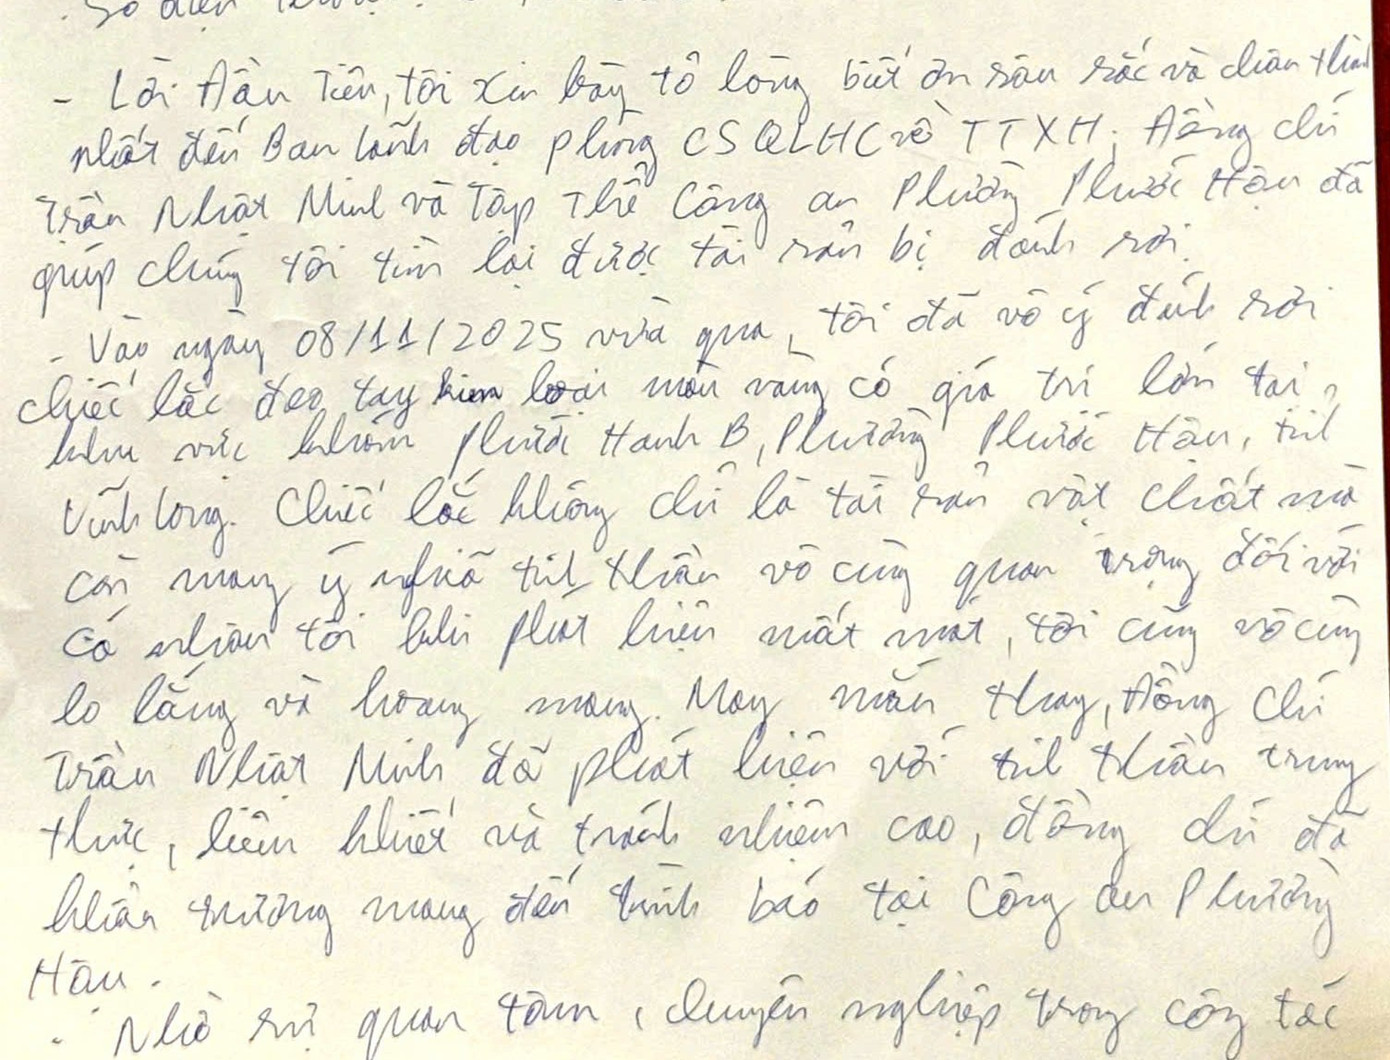 Số điện thoại
- Lời Đầu Tiên, tôi xin bày tỏ lòng biết ơn sâu sắc và chân thành
nhất đến Ban lãnh đạo phòng CSQLHC về TTXH, Đồng chí
Trần Nhật Minh và Tập Thể Công an Phường Phước Hậu đã
giúp chúng tôi tìm lại được tài sản bị đánh rơi.
- Vào ngày 08/11/2025 vừa qua, tôi đã vô ý đánh rơi
chiếc lắc đeo tay kim loại màu vàng có giá trị lớn tại
khu vực khóm Phước Hanh B, Phường Phước Hậu, tỉnh
Vĩnh Long. Chiếc lắc không chỉ là tài sản vật chất mà
còn mang ý nghĩa tinh thần vô cùng quan trọng đối với
cá nhân tôi khi phát hiện mất mát, tôi cũng vô cùng
lo lắng và hoang mang. May mắn thay, Đồng chí
Trần Nhật Minh đã phát hiện với tinh thần trung
thực, liêm khiết và trách nhiệm cao, đồng chí đã
khẩn trương mang đến trình báo tại Công an Phường
Hậu.
- Nhờ sự quan tâm, chuyên nghiệp trong công tác